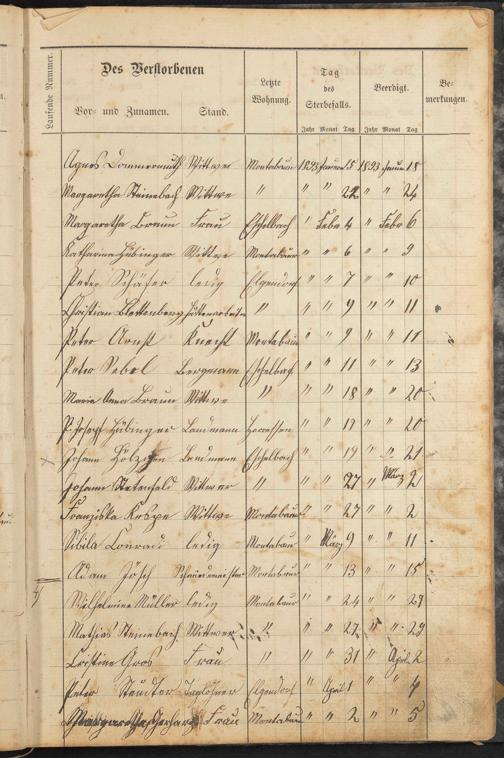 Laufende Nummer.
Des Verstorbenen
Vor- und Zunamen. Stand.
Letzte Wohnung.
Tag des Sterbefalls.
Jahr Monat Tag
Beerdigt.
Jahr Monat Tag
Bemerkungen.
Agnes Dommermuth Wittwe Montabaur 1893 Januar 15 1893 Januar 18
Margaretha Steinebach Wittwe " " " 22 " " 24
Margaretha Braun Frau Eschelbach " Febr 4 " Febr 6
Katharina Hübinger Wittwe Montabaur " " 6 " " 9
Peter Schäfer ledig Elgendorf " " 7 " " 10
Christian Blettenberg Hüttenarbeiter " " " 9 " " 11
Peter Arnst Knecht Montabaur " " 9 " " 11
Peter Sebel Bergmann Eschelbach " " 11 " " 13
Maria Anna Braun Wittwe " " " 18 " " 20
Hübinger Landmann Horressen " " 19 " " 20
Johann Landmann Eschelbach " " 19 " " 21
Johann Wittwer " " " 27 " März 2
Franziska Wittwe Montabaur " " 27 " " 2
Sibila Conradi ledig Montabaur " März 9 " " 11
Adam Jösch Schreinermeister Montabaur " " 13 " " 15
Wilhelmina Müller ledig Montabaur " " 24 " " 27
Mathias Steinebach Wittwer " " " 27 " " 29
Cristine Gros Frau " " " 31 " April 2
Peter Taglöhner Elgendorf " April 1 " " 4
Margaretha Gerharz Frau Montabaur " " 2 " " 5